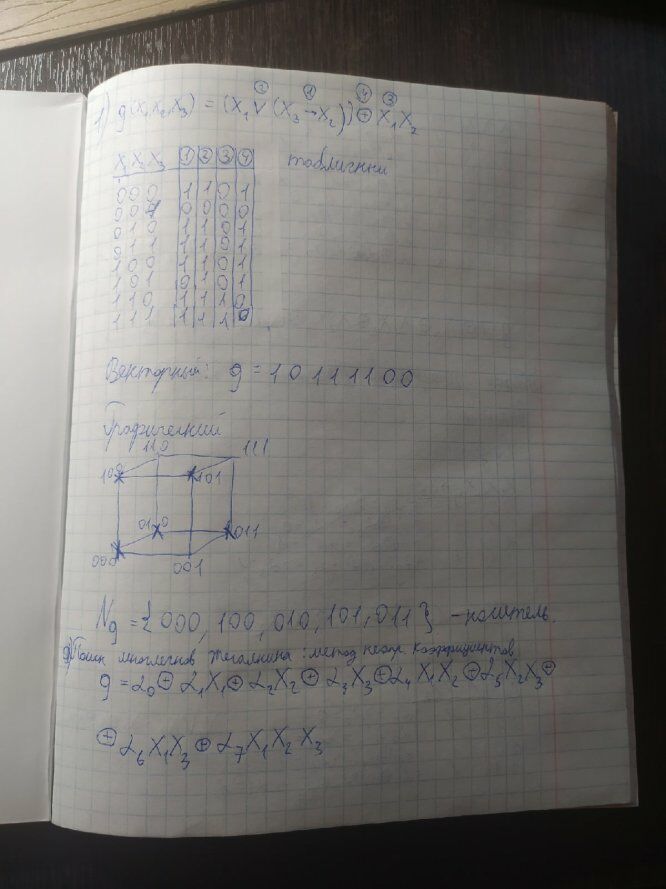 ② ① ④ ③
1) g(x₁x₂x₃) = (x₁ ∨ (x₃ → x₂)) ⊕ x₁x₂
x₁ x₂ x₃ ① ② ③ ④ табличный
0 0 0 1 1 0 1
0 0 1 0 0 0 0
0 1 0 1 1 0 1
0 1 1 1 1 0 1
1 0 0 1 1 0 1
1 0 1 0 1 0 1
1 1 0 1 1 1 0
1 1 1 1 1 1 0
Векторный: g = 10111100
Графический
110 111
100 101
010 011
000 001
N_g = {000, 100, 010, 101, 011} - носитель.
многочленов Жегалкина: метод неопр коэффициентов
g = α₀ ⊕ α₁x₁ ⊕ α₂x₂ ⊕ α₃x₃ ⊕ α₄x₁x₂ ⊕ α₅x₂x₃ ⊕
⊕ α₆x₁x₃ ⊕ α₇x₁x₂x₃